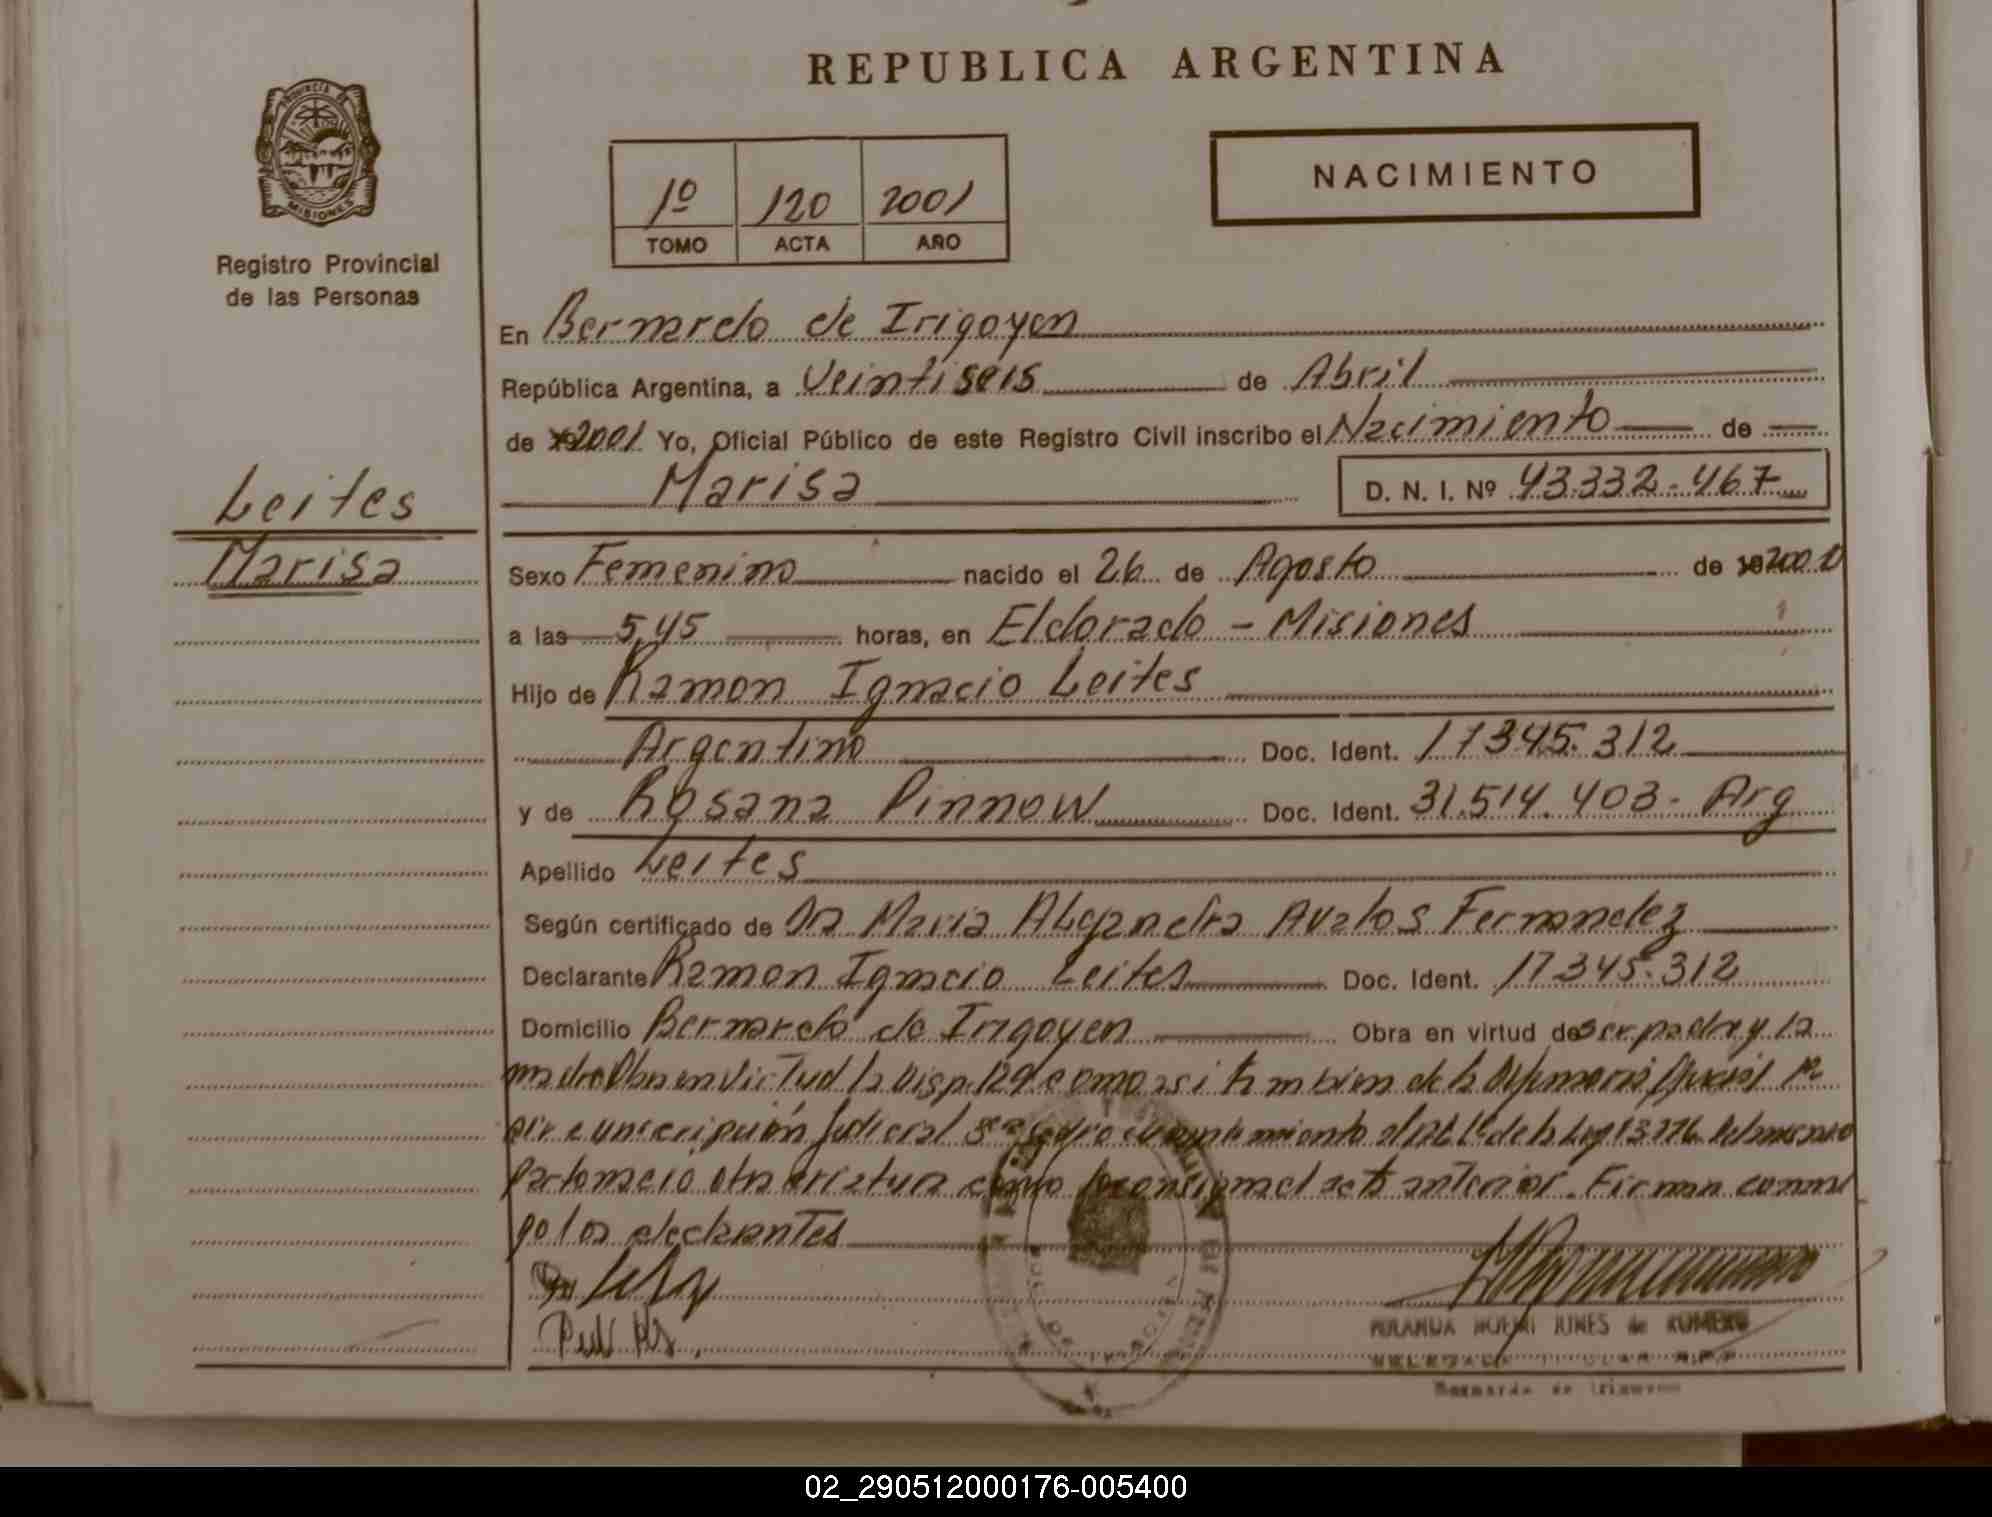 REPUBLICA ARGENTINA
PROVINCIA DE
MISIONES
Registro Provincial
de las Personas
1º 120 2001
TOMO ACTA AÑO
NACIMIENTO
En Bernardo de Irigoyen
República Argentina, a Veintiseis de Abril
de 2001 Yo, Oficial Público de este Registro Civil inscribo el Nacimiento de
Marisa D. N. I. Nº 43.332.467
Leites
Marisa
Sexo Femenino nacido el 26 de Agosto de 2000
a las 5,45 horas, en Eldorado - Misiones
Hijo de Ramon Ignacio Leites
Argentino Doc. Ident. 17345.312
y de Rosana Pinnow Doc. Ident. 31.514.403- Arg
Apellido Leites
Según certificado de Dra Maria Alejandra Avalos Fernandez
Declarante Ramon Ignacio Leites Doc. Ident. 17345.312
Domicilio Bernardo de Irigoyen Obra en virtud de ser padre y la
madre Obra en Virtud la Disp. 129 como asi tambien de la
circunscripción Judicial de la Ley 13
otra como lo consigna el acta anterior. Firman conmi
go los declarantes
YOLANDA NOEMI JUNES de ROMERO
DELEGADA TITULAR R.P.P
Bernardo de Irigoyen
02_290512000176-005400